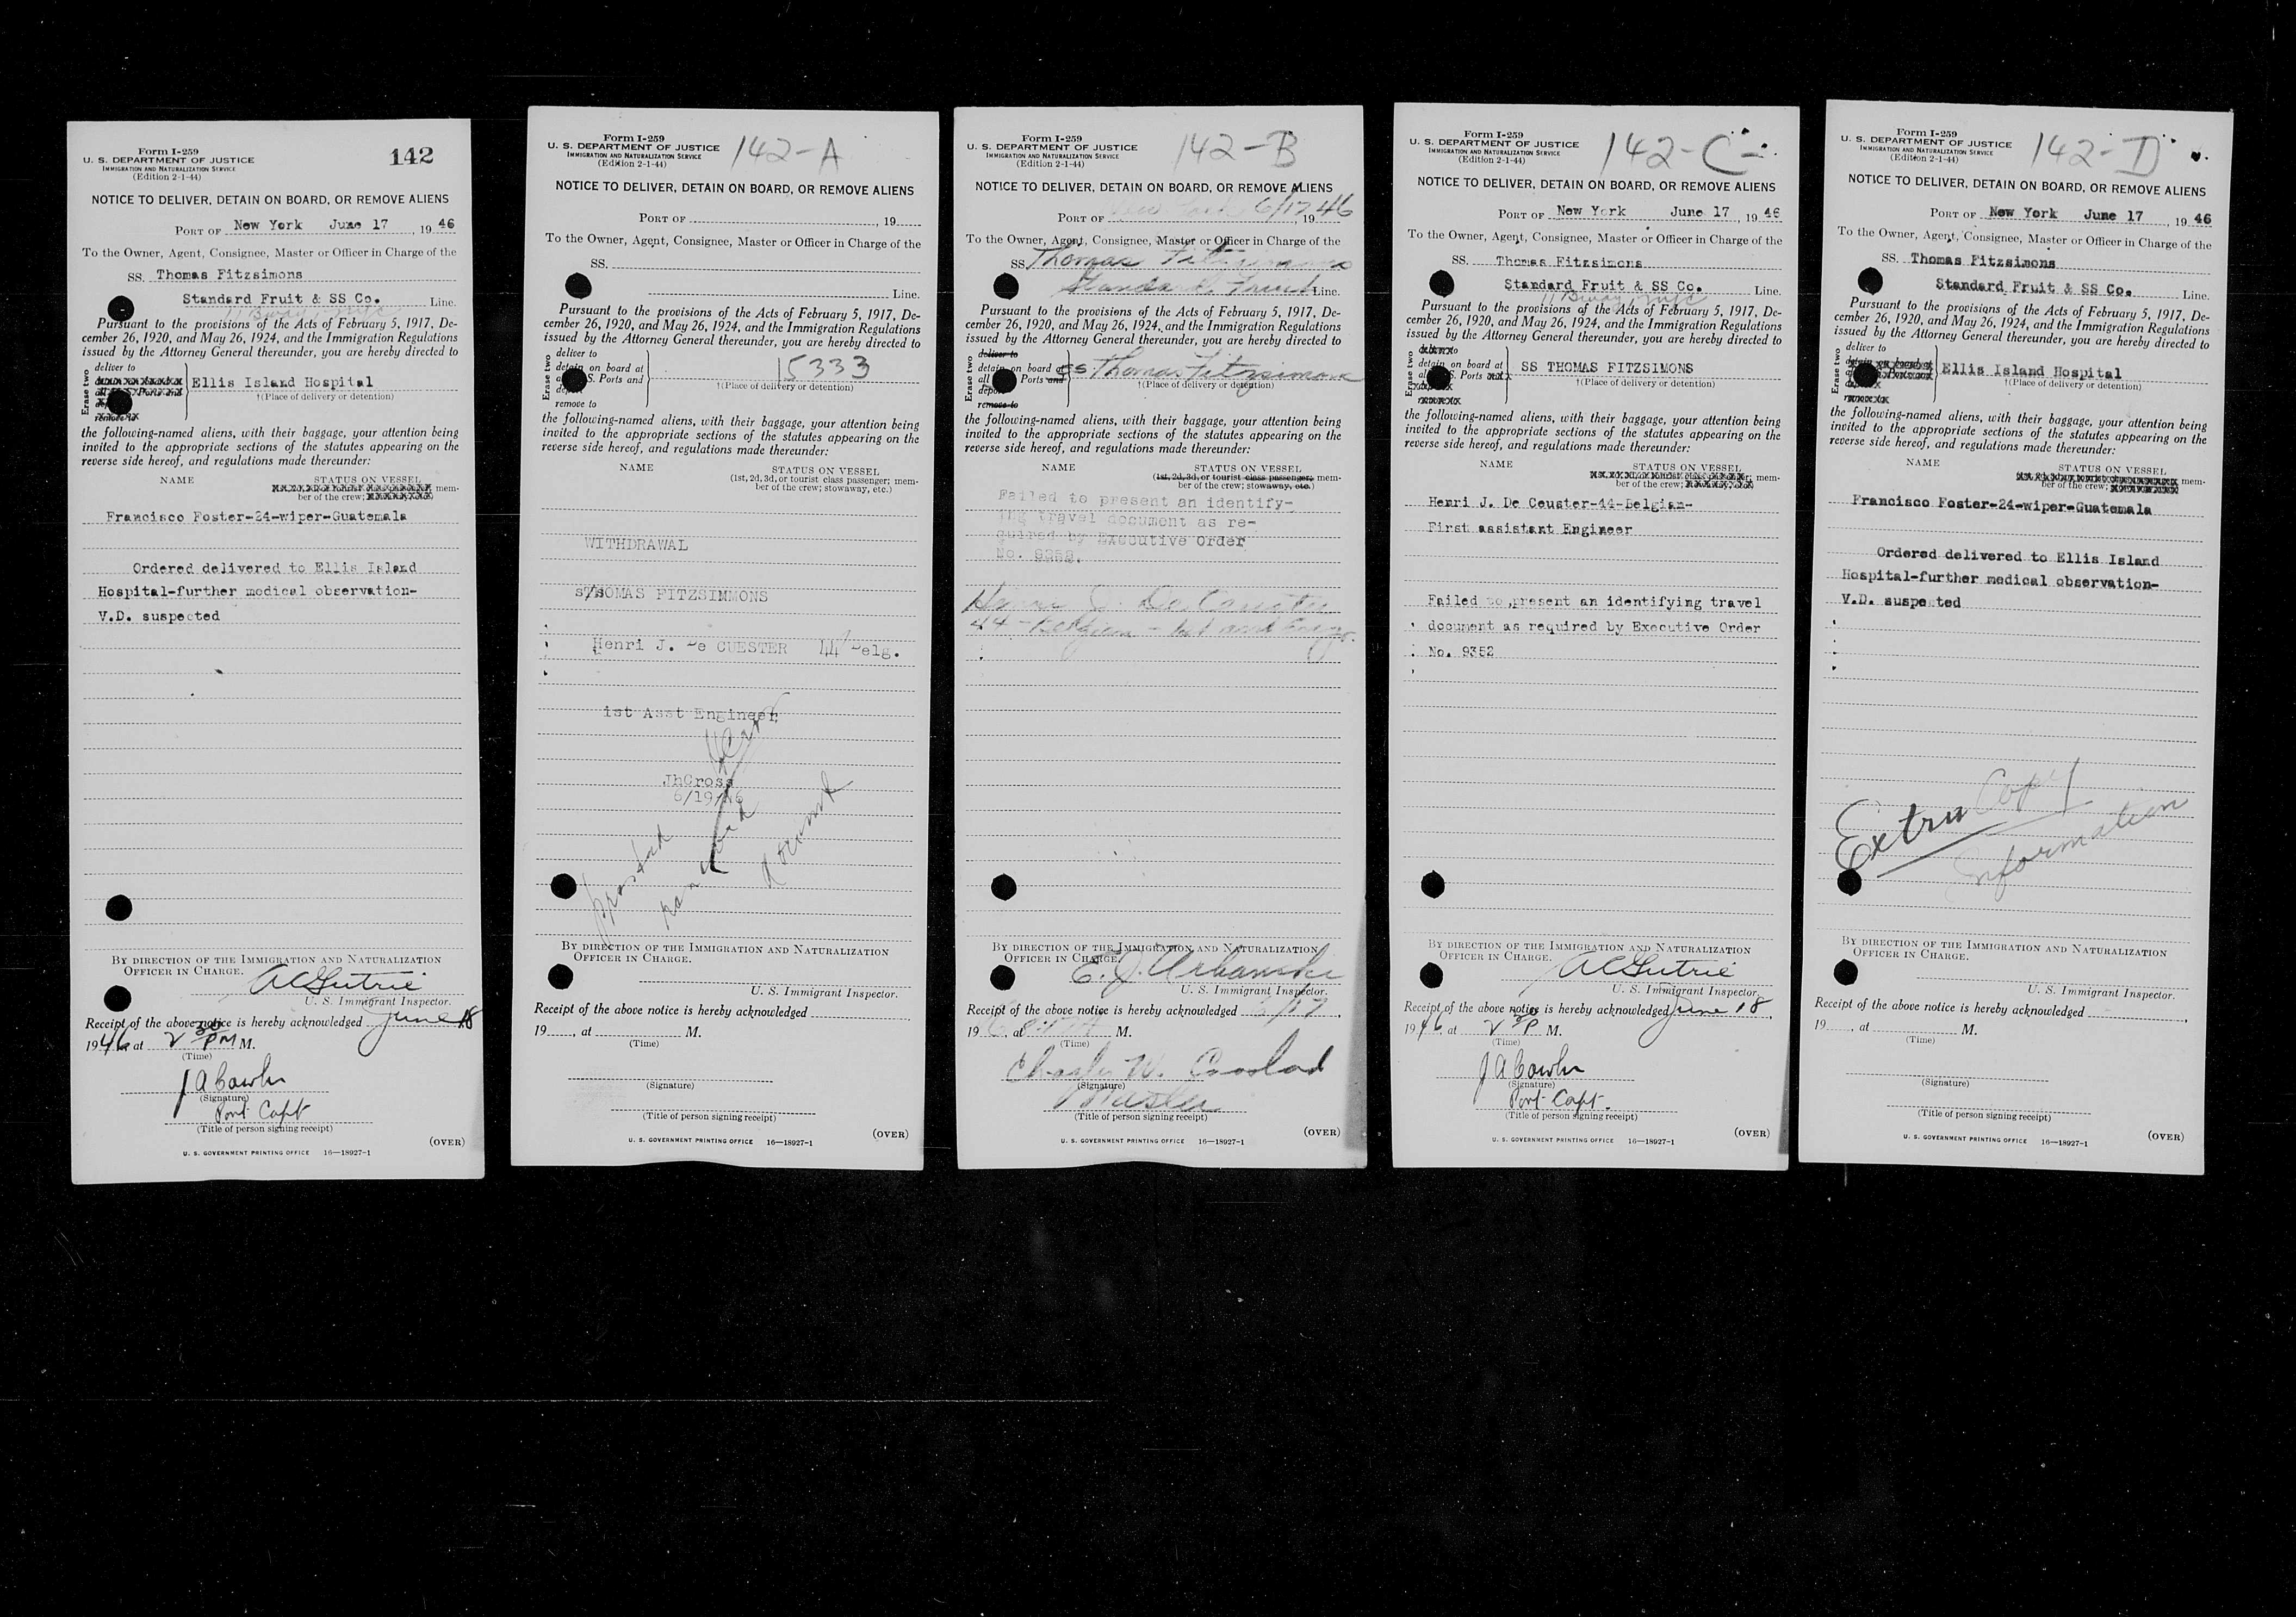 Form I-259
U. S. DEPARTMENT OF JUSTICE
IMMIGRATION AND NATURALIZATION SERVICE
(Edition 2-1-44)
142
NOTICE TO DELIVER, DETAIN ON BOARD, OR REMOVE ALIENS
PORT OF New York June 17, 1946
To the Owner, Agent, Consignee, Master or Officer in Charge of the
SS. Thomas Fitzsimons
Standard Fruit & SS Co. Line.
11 Bway, NYC
Pursuant to the provisions of the Acts of February 5, 1917, De-
cember 26, 1920, and May 26, 1924, and the Immigration Regulations
issued by the Attorney General thereunder, you are hereby directed to
Erase two
deliver to
Ellis Island Hospital
†(Place of delivery or detention)
remove to
the following-named aliens, with their baggage, your attention being
invited to the appropriate sections of the statutes appearing on the
reverse side hereof, and regulations made thereunder:
NAME STATUS ON VESSEL
mem-
ber of the crew;
Francisco Foster-24-wiper-Guatemala
Ordered delivered to Ellis Island
Hospital-further medical observation-
V.D. suspected
BY DIRECTION OF THE IMMIGRATION AND NATURALIZATION
OFFICER IN CHARGE.
A C Gutrie
U. S. Immigrant Inspector.
Receipt of the above notice is hereby acknowledged June 18
1946 at 2 30 PM M.
(Time)
J A Cawln
(Signature)
Port Capt
(Title of person signing receipt)
(OVER)
U. S. GOVERNMENT PRINTING OFFICE 16—18927-1
Form I-259
U. S. DEPARTMENT OF JUSTICE
IMMIGRATION AND NATURALIZATION SERVICE
(Edition 2-1-44)
142-A
NOTICE TO DELIVER, DETAIN ON BOARD, OR REMOVE ALIENS
PORT OF , 19
To the Owner, Agent, Consignee, Master or Officer in Charge of the
SS.
Line.
Pursuant to the provisions of the Acts of February 5, 1917, De-
cember 26, 1920, and May 26, 1924, and the Immigration Regulations
issued by the Attorney General thereunder, you are hereby directed to
Erase two
deliver to
detain on board at
S. Ports and
15333
†(Place of delivery or detention)
remove to
the following-named aliens, with their baggage, your attention being
invited to the appropriate sections of the statutes appearing on the
reverse side hereof, and regulations made thereunder:
NAME STATUS ON VESSEL
(1st, 2d, 3d, or tourist class passenger; mem-
ber of the crew; stowaway, etc.)
WITHDRAWAL
s/sOMAS FITZSIMMONS
Henri J. De CUESTER 44 Belg.
1st Asst Engineer
JhCross
6/19/46
document
BY DIRECTION OF THE IMMIGRATION AND NATURALIZATION
OFFICER IN CHARGE.
U. S. Immigrant Inspector.
Receipt of the above notice is hereby acknowledged
19 , at M.
(Time)
(Signature)
(Title of person signing receipt)
(OVER)
U. S. GOVERNMENT PRINTING OFFICE 16—18927-1
Form I-259
U. S. DEPARTMENT OF JUSTICE
IMMIGRATION AND NATURALIZATION SERVICE
(Edition 2-1-44)
142-B
NOTICE TO DELIVER, DETAIN ON BOARD, OR REMOVE ALIENS
PORT OF New York 6/17, 1946
To the Owner, Agent, Consignee, Master or Officer in Charge of the
SS. Thomas Fitzsimmons
Standard Fruit Line.
Pursuant to the provisions of the Acts of February 5, 1917, De-
cember 26, 1920, and May 26, 1924, and the Immigration Regulations
issued by the Attorney General thereunder, you are hereby directed to
Erase two
deliver to
detain on board
all Ports and
SS Thomas Fitzsimons
†(Place of delivery or detention)
deport
remove to
the following-named aliens, with their baggage, your attention being
invited to the appropriate sections of the statutes appearing on the
reverse side hereof, and regulations made thereunder:
NAME STATUS ON VESSEL
(1st, 2d, 3d, or tourist class passenger; mem-
ber of the crew; stowaway, etc.)
Failed to present an identify-
ing travel document as re-
quired by Executive Order
No. 9352.
Henri J. De Ceuster
44 - Belgian - 1st asst Engr.
BY DIRECTION OF THE IMMIGRATION AND NATURALIZATION
OFFICER IN CHARGE.
E. J. Urbanski
U. S. Immigrant Inspector.
Receipt of the above notice is hereby acknowledged 6/17,
19 6, at M.
(Time)
Charles W.
(Signature)
Master
(Title of person signing receipt)
(OVER)
U. S. GOVERNMENT PRINTING OFFICE 16—18927-1
Form I-259
U. S. DEPARTMENT OF JUSTICE
IMMIGRATION AND NATURALIZATION SERVICE
(Edition 2-1-44)
142-C-
NOTICE TO DELIVER, DETAIN ON BOARD, OR REMOVE ALIENS
PORT OF New York June 17, 1946
To the Owner, Agent, Consignee, Master or Officer in Charge of the
SS. Thomas Fitzsimons
Standard Fruit & SS Co. Line.
11 Bway, NYC
Pursuant to the provisions of the Acts of February 5, 1917, De-
cember 26, 1920, and May 26, 1924, and the Immigration Regulations
issued by the Attorney General thereunder, you are hereby directed to
Erase two
detain on board at
S. Ports
SS THOMAS FITZSIMONS
†(Place of delivery or detention)
the following-named aliens, with their baggage, your attention being
invited to the appropriate sections of the statutes appearing on the
reverse side hereof, and regulations made thereunder:
NAME STATUS ON VESSEL
mem-
ber of the crew;
Henri J. De Ceuster-44-Belgian-
First assistant Engineer
Failed to present an identifying travel
document as required by Executive Order
No. 9352
BY DIRECTION OF THE IMMIGRATION AND NATURALIZATION
OFFICER IN CHARGE.
A C Gutrie
U. S. Immigrant Inspector.
Receipt of the above notice is hereby acknowledged June 18,
1946, at 2 30 P. M.
(Time)
J A Cawln
(Signature)
Port Capt.
(Title of person signing receipt)
(OVER)
U. S. GOVERNMENT PRINTING OFFICE 16—18927-1
Form I-259
U. S. DEPARTMENT OF JUSTICE
IMMIGRATION AND NATURALIZATION SERVICE
(Edition 2-1-44)
142-D
NOTICE TO DELIVER, DETAIN ON BOARD, OR REMOVE ALIENS
PORT OF New York June 17, 1946
To the Owner, Agent, Consignee, Master or Officer in Charge of the
SS. Thomas Fitzsimons
Standard Fruit & SS Co. Line.
Pursuant to the provisions of the Acts of February 5, 1917, De-
cember 26, 1920, and May 26, 1924, and the Immigration Regulations
issued by the Attorney General thereunder, you are hereby directed to
Erase two
deliver to
Ellis Island Hospital
†(Place of delivery or detention)
the following-named aliens, with their baggage, your attention being
invited to the appropriate sections of the statutes appearing on the
reverse side hereof, and regulations made thereunder:
NAME STATUS ON VESSEL
mem-
ber of the crew;
Francisco Foster-24-wiper-Guatemala
Ordered delivered to Ellis Island
Hospital-further medical observation-
V.D. suspe ted
Extra Copy
Information
BY DIRECTION OF THE IMMIGRATION AND NATURALIZATION
OFFICER IN CHARGE.
U. S. Immigrant Inspector.
Receipt of the above notice is hereby acknowledged
19 , at M.
(Time)
(Signature)
(Title of person signing receipt)
(OVER)
U. S. GOVERNMENT PRINTING OFFICE 16—18927-1